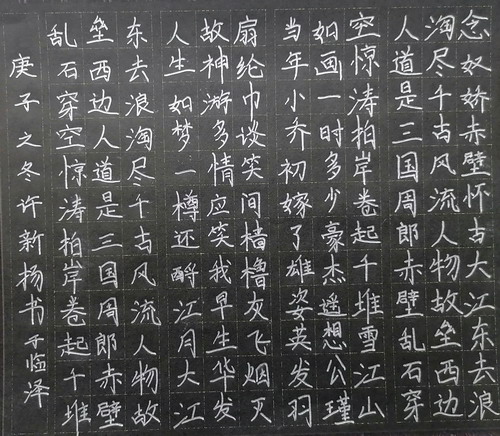 念奴娇赤壁怀古大江东去浪
淘尽千古风流人物故垒西边
人道是三国周郎赤壁乱石穿
空惊涛拍岸卷起千堆雪江山
如画一时多少豪杰遥想公瑾
当年小乔初嫁了雄姿英发羽
扇纶巾谈笑间樯橹灰飞烟灭
故神游多情应笑我早生华发
人生如梦一樽还酹江月大江
东去浪淘尽千古风流人物故
垒西边人道是三国周郎赤壁
乱石穿空惊涛拍岸卷起千堆
庚子之冬许新扬书于临泽